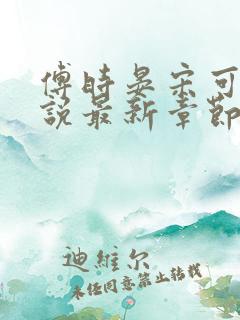 傅时晏宋可
说最新章节
迪维尔
未经同意禁止转载